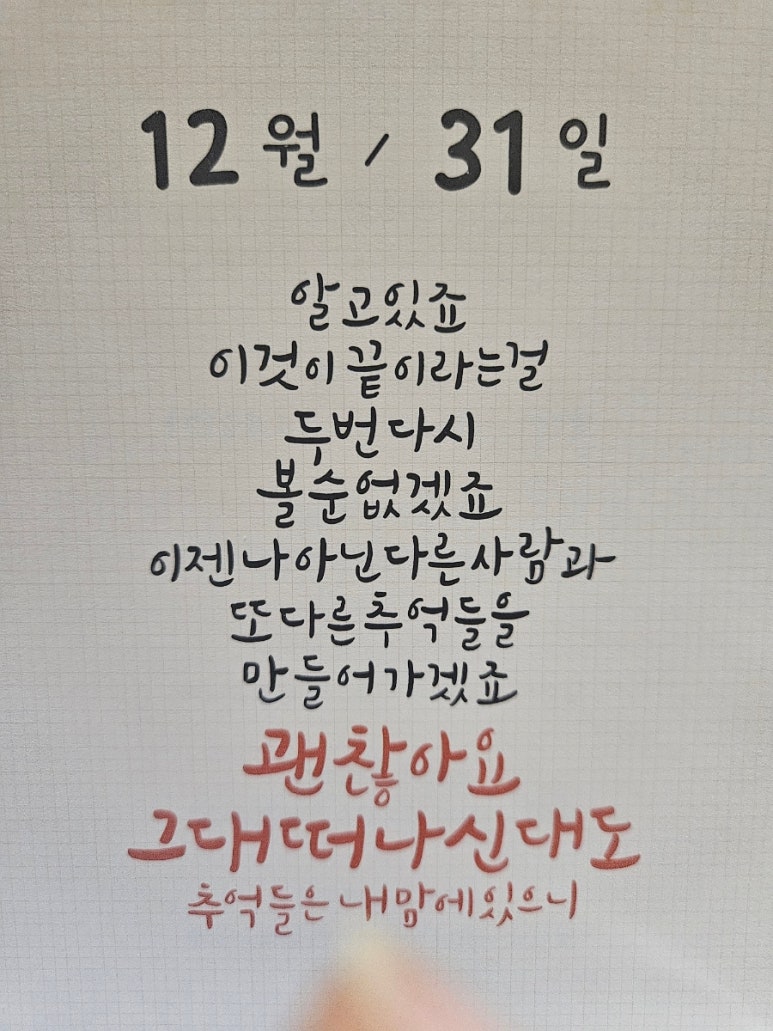 12월 / 31일
알고있죠
이것이끝이라는걸
두번다시
볼순없겠죠
이젠나아닌다른사람과
또다른추억들을
만들어가겠죠
괜찮아요
그대떠나신대도
추억들은내맘에있으니